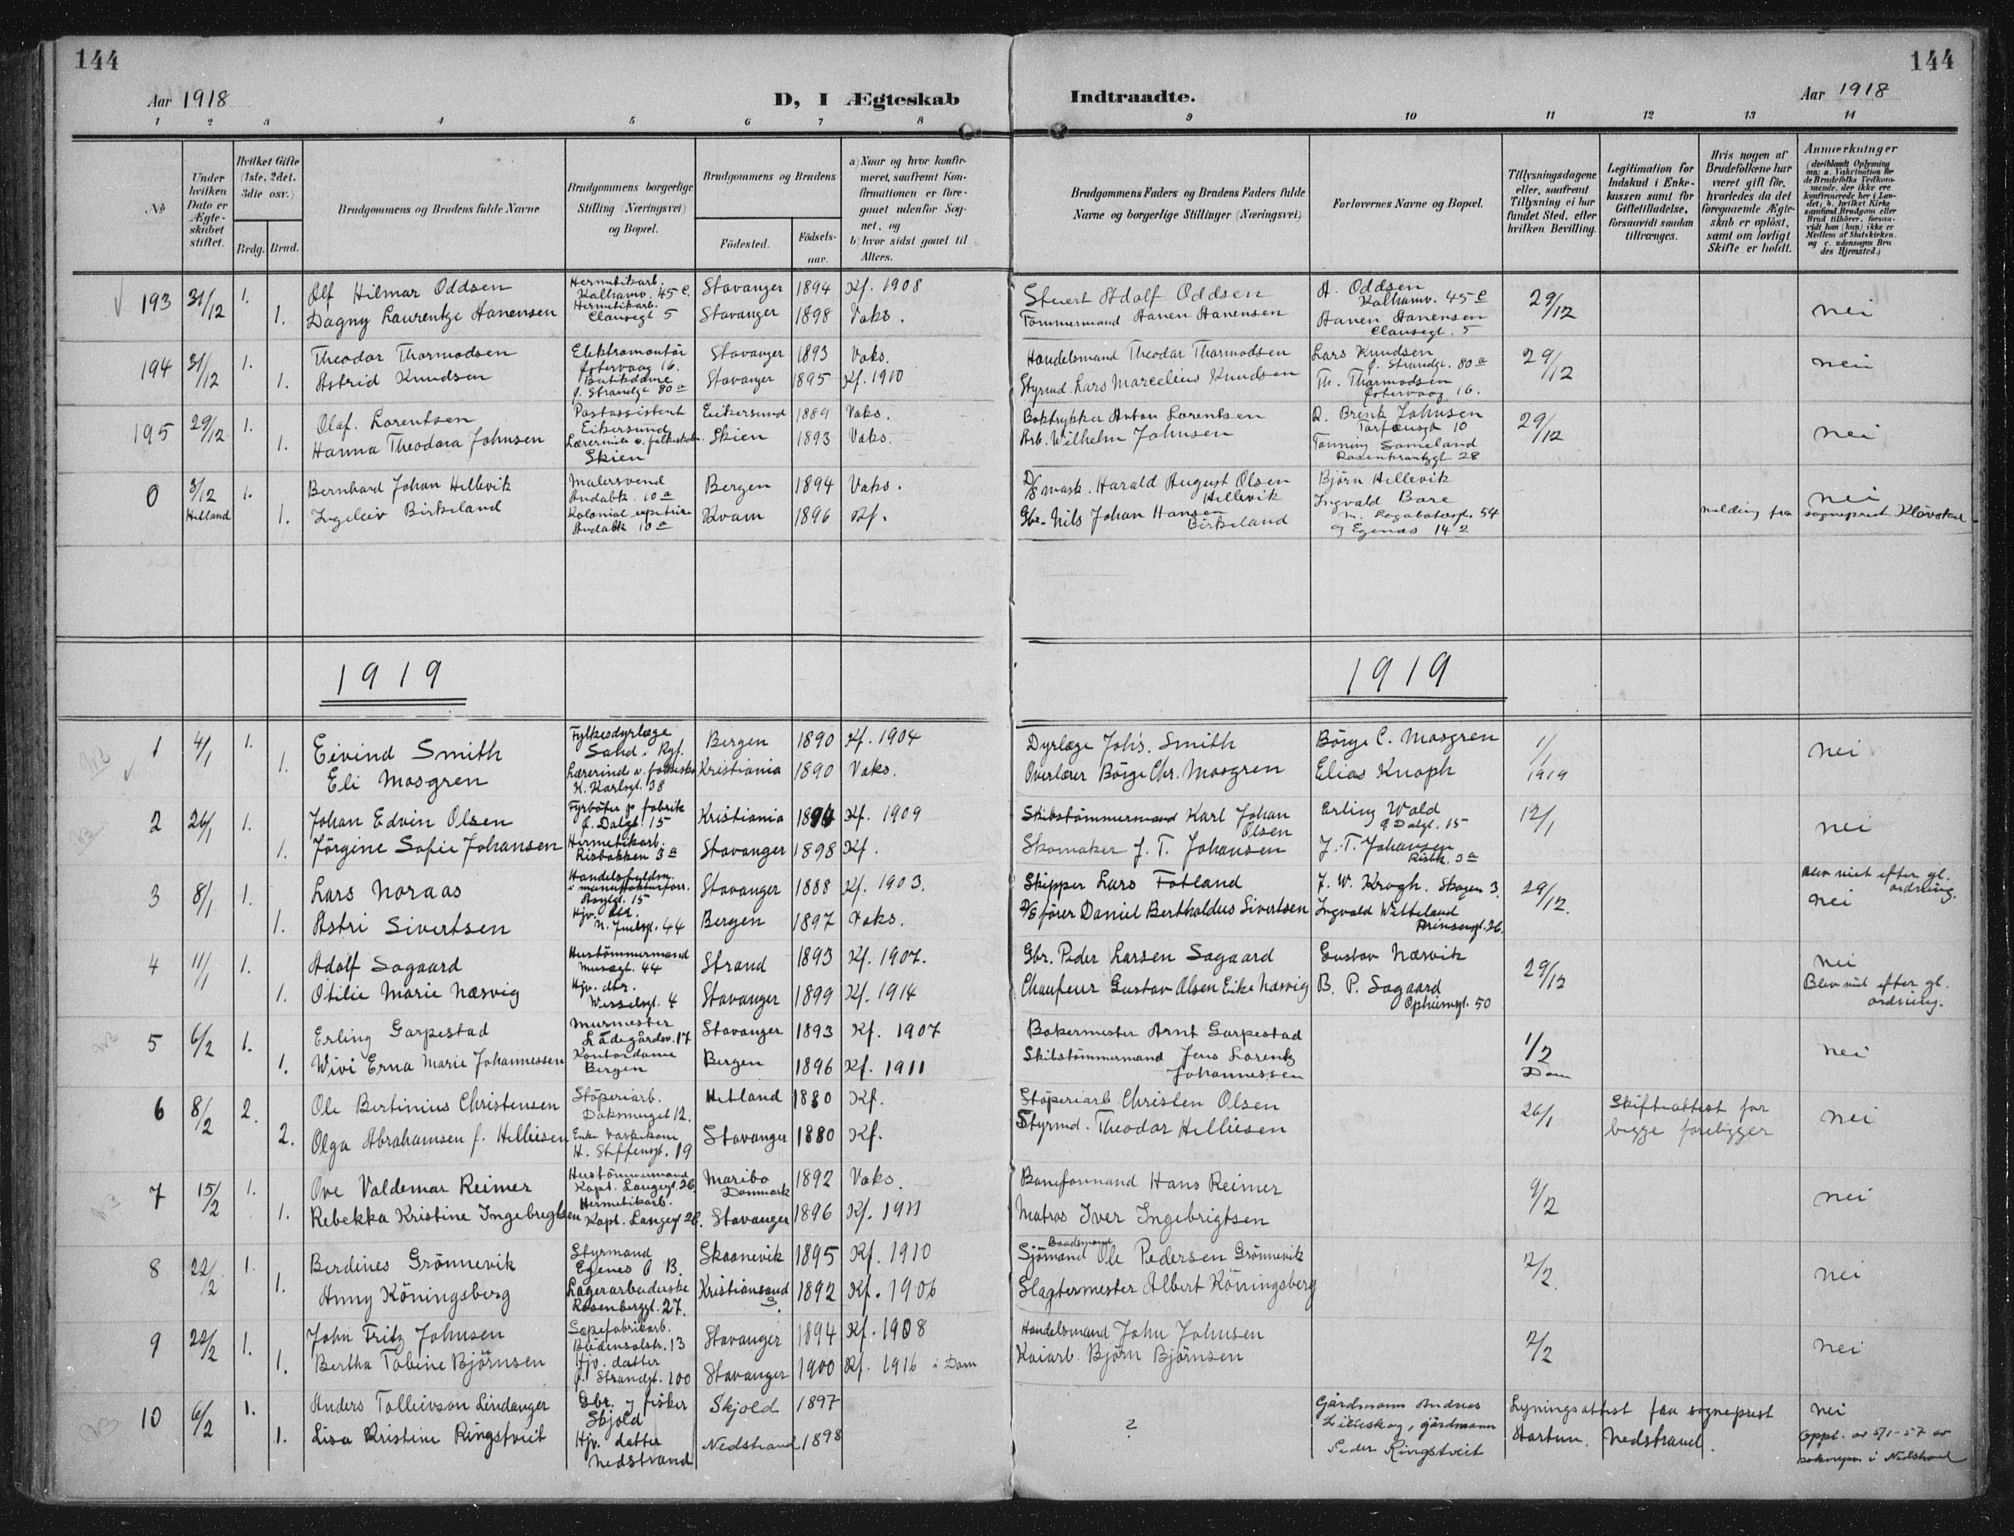 144
144
Aar 1918
D, I Ægteskab
Indtraadte.
Aar 1918
1 2 3 4 5 6 7 8 9 10 11 12 13 14
No
Under hvilken Dato er Ægteskabet stiftet.
Hvilket Gifte (1ste, 2det, 3die osv.)
Brdg. Brud.
Brudgommens og Brudens fulde Navne
Brudgommens borgerlige Stilling (Næringsvei) og Bopæl.
Brudgommens og Brudens
Fødested.
Fødselsaar.
a) Naar og hvor konfirmeret, saafremt Konfirmationen er foregaaet udenfor Sognet, og
b) hvor sidst gaaet til Alters.
Brudgommens Faders og Brudens Faders fulde Navne og borgerlige Stillinger (Næringsvei)
Forlovernes Navne og Bopæl.
Tillysningsdagene eller, saafremt Tillysning ei har fundet Sted, efter hvilken Bevilling.
Legitimation for Indskud i Enkekassen samt for Giftetilladelse, forsaavidt saadan tiltrænges.
Hvis nogen af Brudefolkene har været gift før, hvorledes da det foregaaende Ægteskab er opløst, samt om lovligt Skifte er holdt.
Anmærkninger
193 31/12 1. Alf Hilmar Oddsen Hermetikarb. Kalhamv. 45 c. Stavanger 1894 Kf. 1908 Stuert Adolf Oddsen A. Oddsen Kalhamv. 45 c 29/12 nei
1. Dagny Laurentze Hanensen Hermetikarb. Clausegt 5 Stavanger 1898 Vaks. Tømmermand Hanen Hanensen Hanen Hanensen Clausegt. 5
194 31/12 1. Theodor Thormodsen Elektromontør Østervaag 16. Stavanger 1893 Vaks. Handelsmand Theodor Thormodsen Lars Knudsen Ø. Strandgt. 80 a 29/12 nei
1. Astrid Knudsen Butikdame Ø. Strandgt 80 a Stavanger 1895 Kf. 1910 Styrmd Lars Marcelius Knudsen Th. Thormodsen Østervaag 16.
195 29/12 1. Olaf. Lorentsen Postassistent Eikersund Eikersund 1889 Vaks. Boktrykker Anton Lorentsen 29/12 nei
1. Hanna Theodora Johnsen Skien Skien 1893 Vaks. Arb. Wilhelm Johnsen Rosenkrantzgt 28
0 3/12 Hetland 1. Bernhard Johan Hillevik Malersvend 10 a Bergen 1894 Vaks. Harald August Olsen Hillevik Bjørn Hillevik nei
1. Ingeleiv Birkeland 10 a Kvam 1896 Kf. Gbr. Nils Johan Hansen Birkeland Ingvald Bore 54 og Egenes 14 2 melding fra sogneprest Kløvstad
1919
1919
1 4/1 1. Eivind Smith Fylkesdyrlæge Sand i Ryf. Bergen 1890 Kf. 1904 Dyrlæge Johs. Smith Børge C. Mosgren 1/1 1919 nei
1. Eli Mosgren K. Karlsgt. 38 Kristiania 1890 Vaks. Overlærer Børge Chr. Mosgren Elias Knoph
2 26/1 1. Johan Edvin Olsen Fyrbøter p. fabrik Ø. Dalgt. 15 Kristiania 1894 Kf. 1909 Skibstømmermand Karl Johan Olsen Erling Wold Ø Dalgt. 15 12/1 nei
1. Jørgine Sofie Johansen Hermetikarb. Risbakken 3 a Stavanger 1898 Kf. Skomaker J. T. Johansen J. T. Johansen Risbk. 3 a
3 8/1 1. Lars Noraas Stavanger 1888 Kf. 1903. Skipper Lars Fotland J. W. Krogh. Skagen 3 29/12. Blev viet efter gl. ordning. nei
1. Astri Sivertsen Hjv. dtr. 44 Bergen 1897 Vaks. D/S fører Daniel Bertholdus Sivertsen Ingvald Wetteland Prinsensgt. 26.
4 11/1 1. Adolf Sagaard Hustømmermand Musegt. 44 Strand 1893 Kf. 1907. Gbr. Peder Larsen Sagaard Gustav Næsvik 29/12 nei
1. Otilie Marie Næsvig Hjv. dtr. Wesselsgt. 4 Stavanger 1899 Kf. 1914 Chaufeur Gustav Olsen Eike Næsvig B. P. Sagaard Opheimsgt. 50 Blev viet efter gl. ordning.
5 6/2 1. Erling Garpestad Murmester Ladegårdsv. 17 Stavanger 1893 Kf. 1907 Bakermester Arnt Garpestad 1/2 Dom nei
1. Wivi Erna Marie Johannessen Kontordame Bergen Bergen 1896 Kf. 1911 Skibstømmermand Jens Lorentz Johannessen
6 8/2 2. Ole Bertinius Christensen Støperiarb. 12. Hetland 1880 Kf. Støperiarb Christen Olsen 26/1 Skifteattest for begge foreligger nei
2. Olga Abrahamsen f. Helliesen H. Steffensgt. 19 Stavanger 1880 Kf. Styrmd. Theodor Helliesen
7 15/2 1. Ove Valdemar Reimer Hustømmermand Kapt. Langegt. 26 Maribo Danmark 1892 Vaks. Baneformand Hans Reimer 9/2 nei
1. Rebekka Kristine Ingebregtsen Hermetikarb. Kapt. Langegt 26. Stavanger 1896 Kf. 1911 Matros Iver Ingebrigtsen
8 22/2 1. Berdines Grønnevik Styrmand Egenes Ø B. Skaanevik 1895 Kf. 1910 Sjømand Ole Pedersen Grønnevik 2/2. nei
1. Anny Köningsberg Lagerarbeiderske Rosenberggt. 27. Kristiansand S. 1892 Kf. 1906 Slagtermester Albert Köningsberg
9 22/2 1. John Fritz Johnsen Sæpefabrikarb. 13 Stavanger 1894 Kf. 1908 Handelsmand John Johnsen 2/2 nei
1. Bertha Tobine Bjørnsen Hjv. datter Ø. Strandgt. 100 Stavanger 1900 Kf. 1916 i Dom Kaiarb. Bjørn Bjørnsen
10 6/2 1. Anders Tolleivson Lindanger Gbr. og fisker Skjold Skjold 1897 ? Gårdmann Andreas Lilleskog, gårdmann Peder Ringstveit Lysningsattest fra sogneprest Hartun. Nedstrand. nei
1. Lisa Kristine Ringstveit Hjv. datter Nedstrand Nedstrand 1898 Oppl. av 5/1-57 av soknepr. i Nedstrand